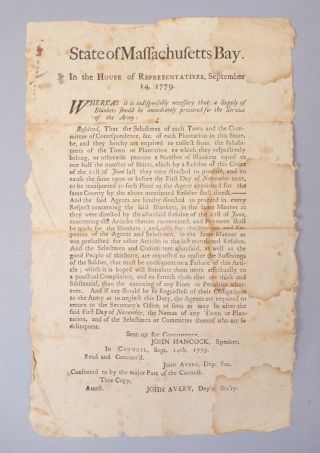 State of Massachusetts Bay.
In the HOUSE of REPRESENTATIVES, September
14, 1779.
WHEREAS it is indispensably necessary that a Supply of
Blankets should be immediately procured for the Service
of the Army:
Resolved, That the Selectmen of each Town and the Com-
mittee of Correspondence, &c. of each Plantation in this State,
be, and they hereby are required to collect from the Inhabi-
tants of the Town or Plantation to which they respectively
belong, or otherwise procure a Number of Blankets equal to
one half the number of Shirts, which by a Resolve of this Court
of the 21st of June last they were directed to procure, and to
cause the same upon or before the First Day of November next,
to be transported to such Place as the Agent appointed for the
same County by the above mentioned Resolve shall direct.
And the said Agents are hereby directed to proceed in every
Respect concerning the said Blankets, in the same Manner as
they were directed by the aforesaid Resolve of the 21st of June,
concerning the Articles therein mentioned, and Payment shall
be made for the Blankets, and also for the and Ex-
pences of the Agents and Selectmen, in the same Manner as
was prescribed for other Articles in the last mentioned Resolve.
And the Selectmen and Committees aforesaid, as well as the
good People of this State, are requested to realize the Sufferings
of the Soldier, that must be consequent on a Failure of this Ar-
ticle; which it is hoped will stimulate them more effectually to
a punctual Compliance, and to furnish those that are thick and
substantial, than the annexing of any Fines or Penalties what-
ever. And if any should be so Regardless of their Obligations
to the Army as to neglect this Duty, the Agents are required to
return to the Secretary's Office, as soon as may be after the
said First Day of November, the Names of any Town or Plan-
tation, and of the Selectmen or Committee thereof who are so
delinquent.
Sent up for Concurrence.
JOHN HANCOCK, Speaker.
In COUNCIL, Sept. 14th, 1779.
Read and Concur'd.
JOHN AVERY, Dep. Sec.
Consented to by the major Part of the Council.
True Copy,
Attest. JOHN AVERY, Dep'y. Sec'ry.